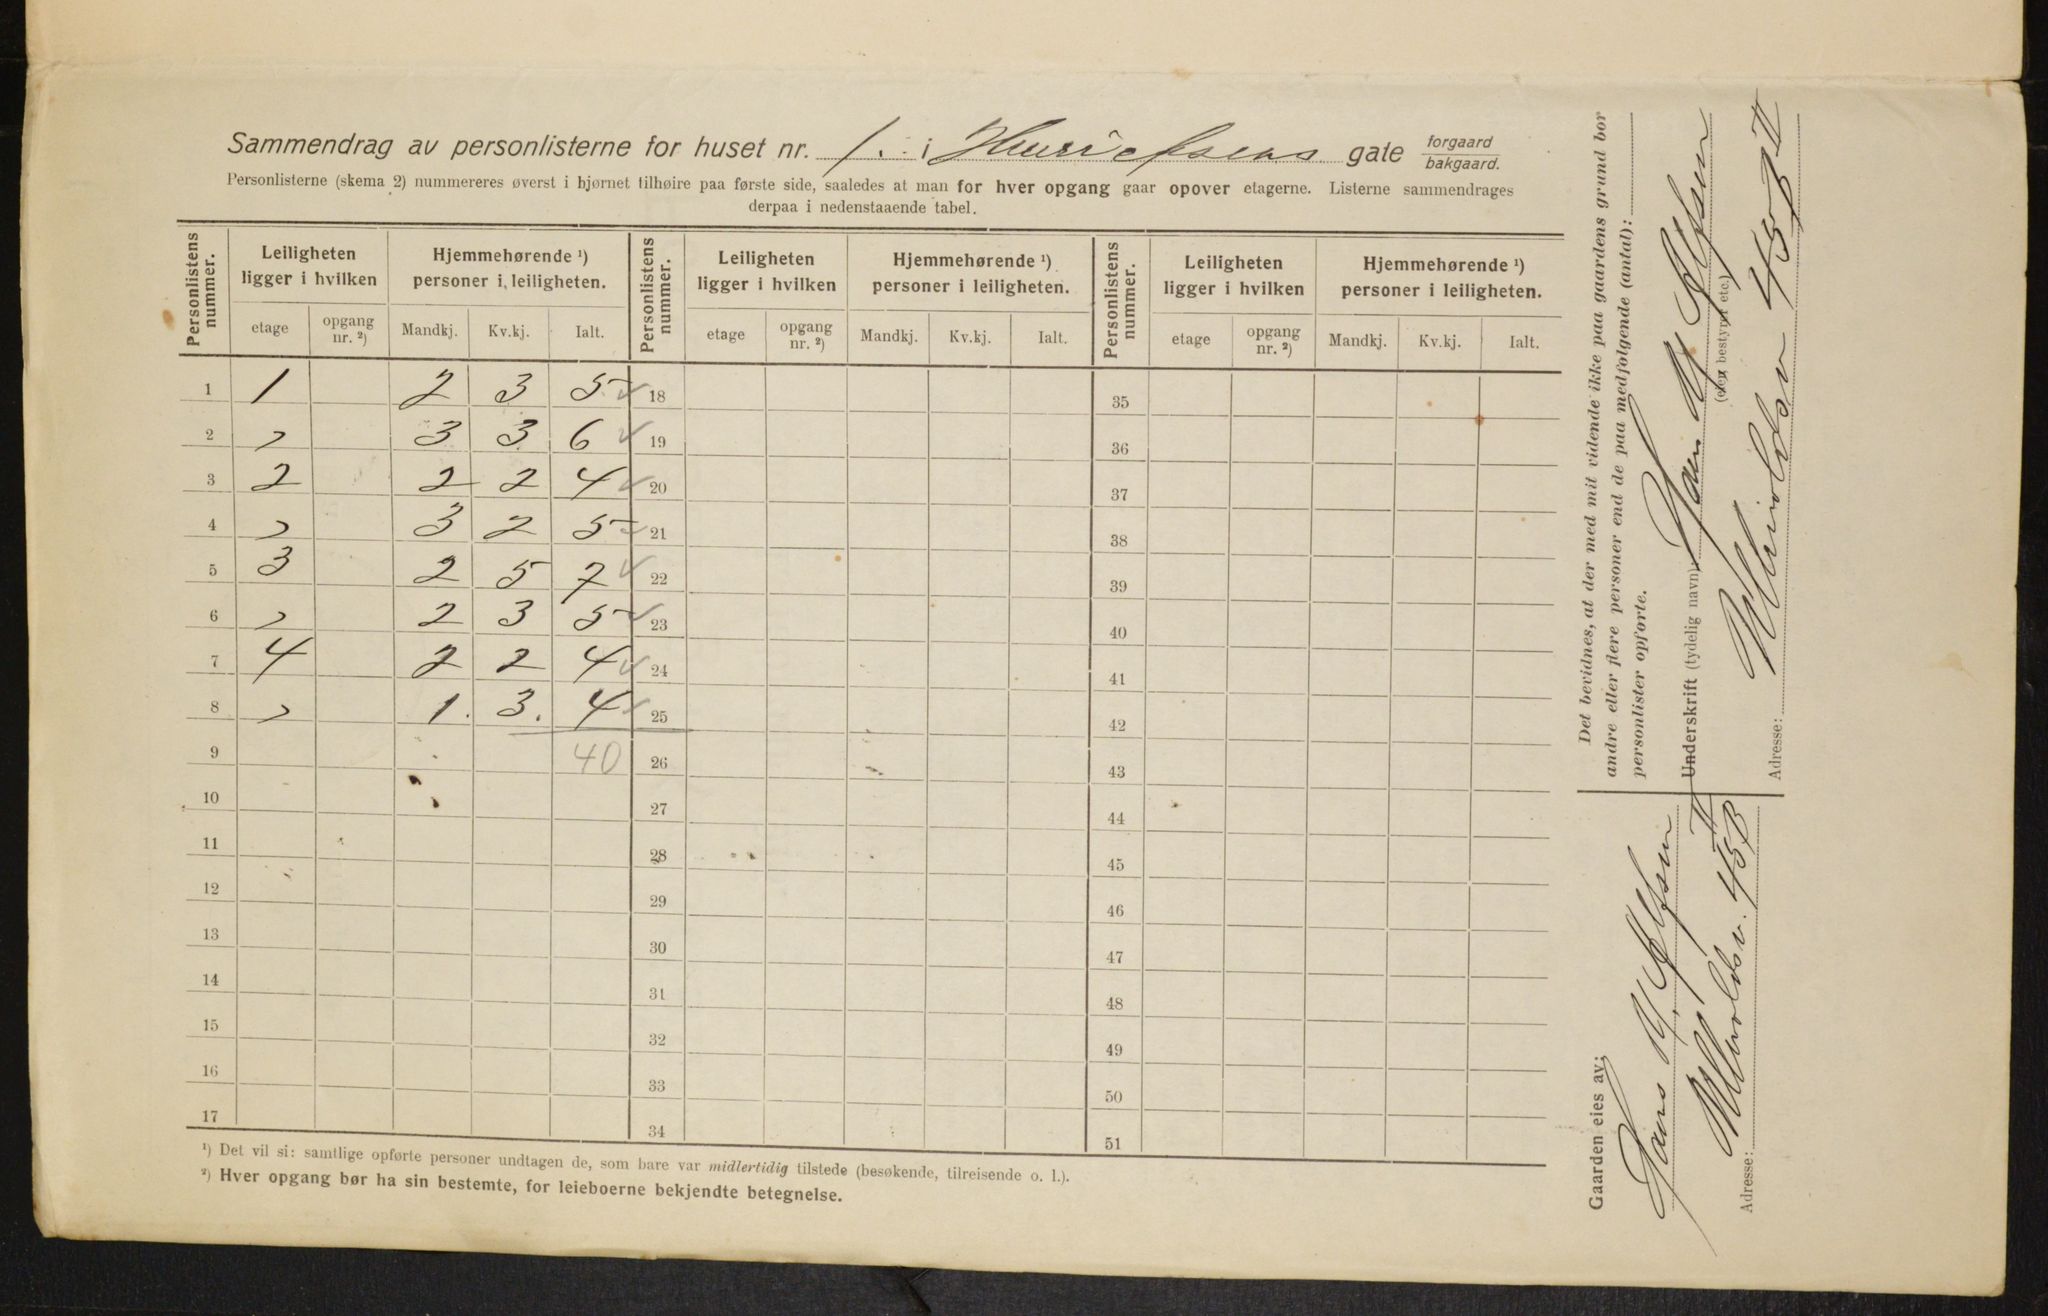 Sammendrag av personlisterne for huset nr. 1. i gate forgaard bakgaard.
Personlisterne (skema 2) nummereres øverst i hjørnet tilhøire paa første side, saaledes at man for hver opgang gaar opover etagerne. Listerne sammendrages
derpaa i nedenstaaende tabel.
Personlistens nummer. Leiligheten ligger i hvilken Hjemmehørende ¹) personer i leiligheten. Personlistens nummer. Leiligheten ligger i hvilken Hjemmehørende ¹) personer i leiligheten. Personlistens nummer. Leiligheten ligger i hvilken Hjemmehørende ¹) personer i leiligheten.
etage opgang nr. ²) Mandkj. Kv.kj. Ialt. etage opgang nr. ²) Mandkj. Kv.kj. Ialt. etage opgang nr. ²) Mandkj. Kv.kj. Ialt.
1 1 2 3 5 18 35
2 „ 3 3 6 19 36
3 2 2 2 4 20 37
4 „ 3 2 5 21 38
5 3 2 5 7 22 39
6 „ 2 3 5 23 40
7 4 2 2 4 24 41
8 „ 1. 3. 4 25 42
9 40 26 43
10 27 44
11 28 45
12 29 46
13 30 47
14 31 48
15 32 49
16 33 50
17 34 51
¹) Det vil si: samtlige opførte personer undtagen de, som bare var midlertidig tilstede (besøkende, tilreisende o. l.).
²) Hver opgang bør ha sin bestemte, for leieboerne bekjendte betegnelse.
Det bevidnes, at der med mit vidende ikke paa gaardens grund bor
andre eller flere personer end de paa medfølgende (antal):
personlister opførte.
Underskrift (tydelig navn):
(eier, bestyrer etc.)
Adresse: 45B II
Gaarden eies av: Hans
Adresse: 45B II